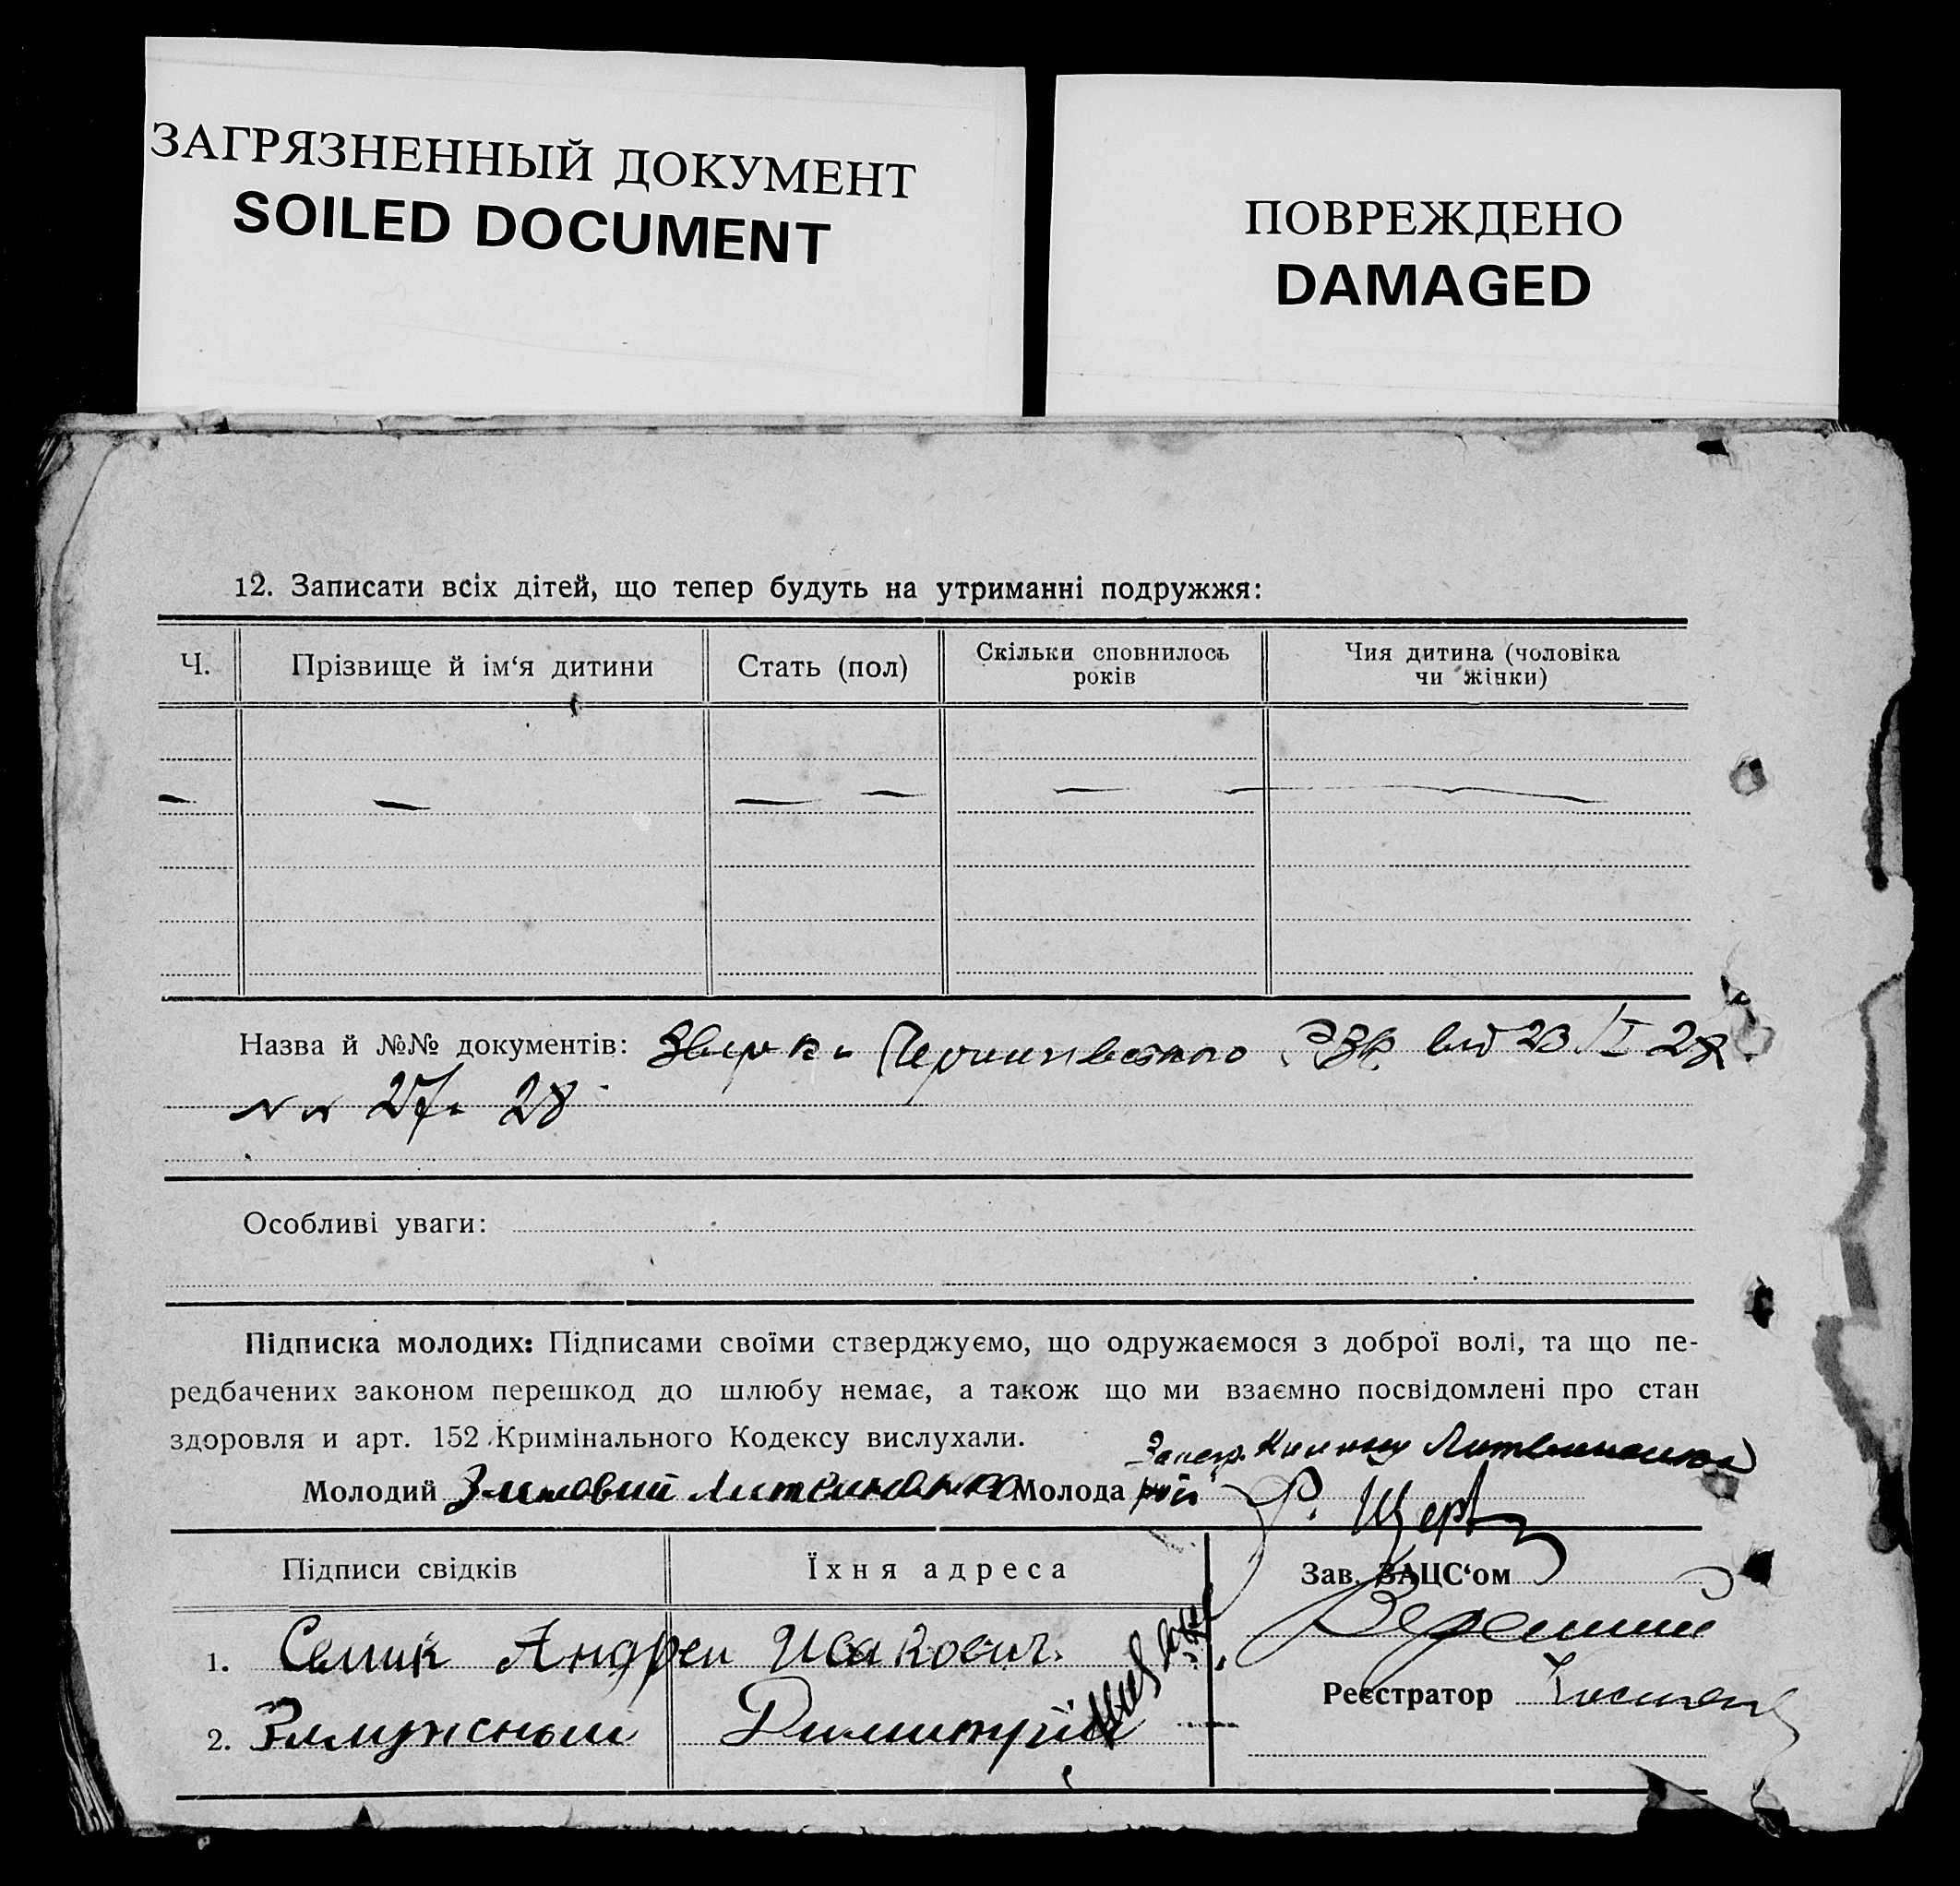 ЗАГРЯЗНЕННЫЙ ДОКУМЕНТ
SOILED DOCUMENT
ПОВРЕЖДЕНО
DAMAGED
12. Записати всіх дітей, що тепер будуть на утриманні подружжя:
Ч.
Прізвище й ім‘я дитини
Стать (пол)
Скільки сповнилось
років
Чия дитина (чоловіка
чи жінки)
Назва й №№ документів: від 23/I 28
27 28
Особливі уваги:
Підписка молодих: Підписами своїми стверджуємо, що одружаємося з доброї волі, та що пе-
редбачених законом перешкод до шлюбу немає, а також що ми взаємно посвідомлені про стан
здоровля и арт. 152 Кримінального Кодексу вислухали.
Молодий Литвиненко Молода
Р. Щерб
Підписи свідків
Їхня адреса
Зав. ЗАЦС‘ом
1. Семик Андреи Исакович.
Реєстратор
2. Димитрій